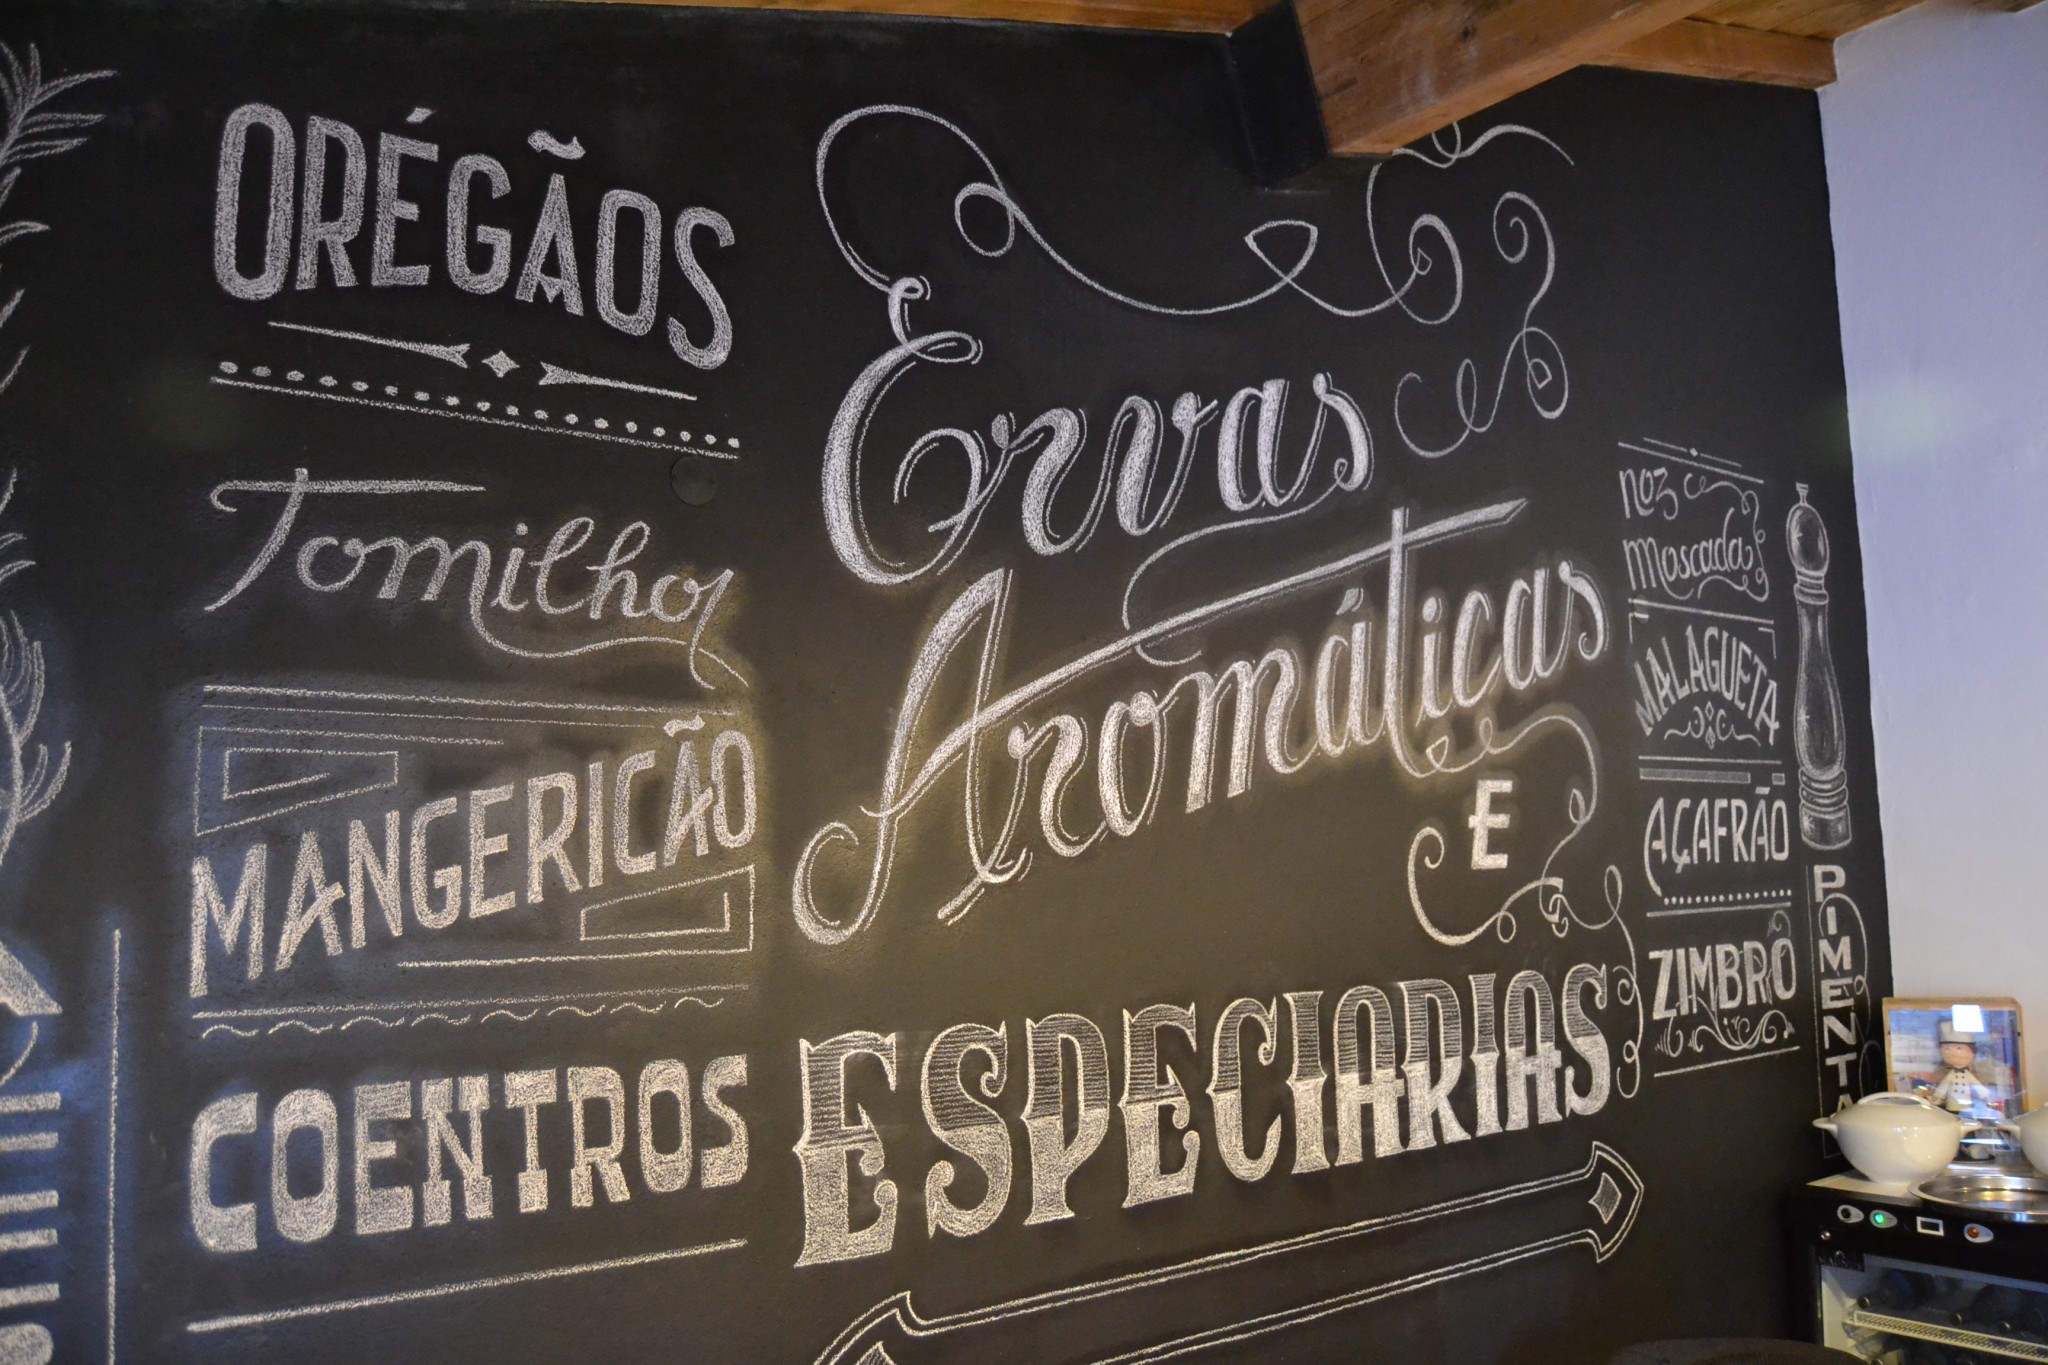 ORÉGÃOS
Tomilho
MANGERICÃO
COENTROS
Ervas
Aromáticas
E
ESPECIARIAS
noz
moscada
MALAGUETA
AÇAFRÃO
ZIMBRO
PIMENTA